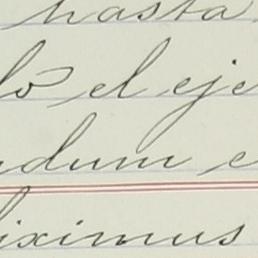 hasta
ló el eje
ndum e
iximus